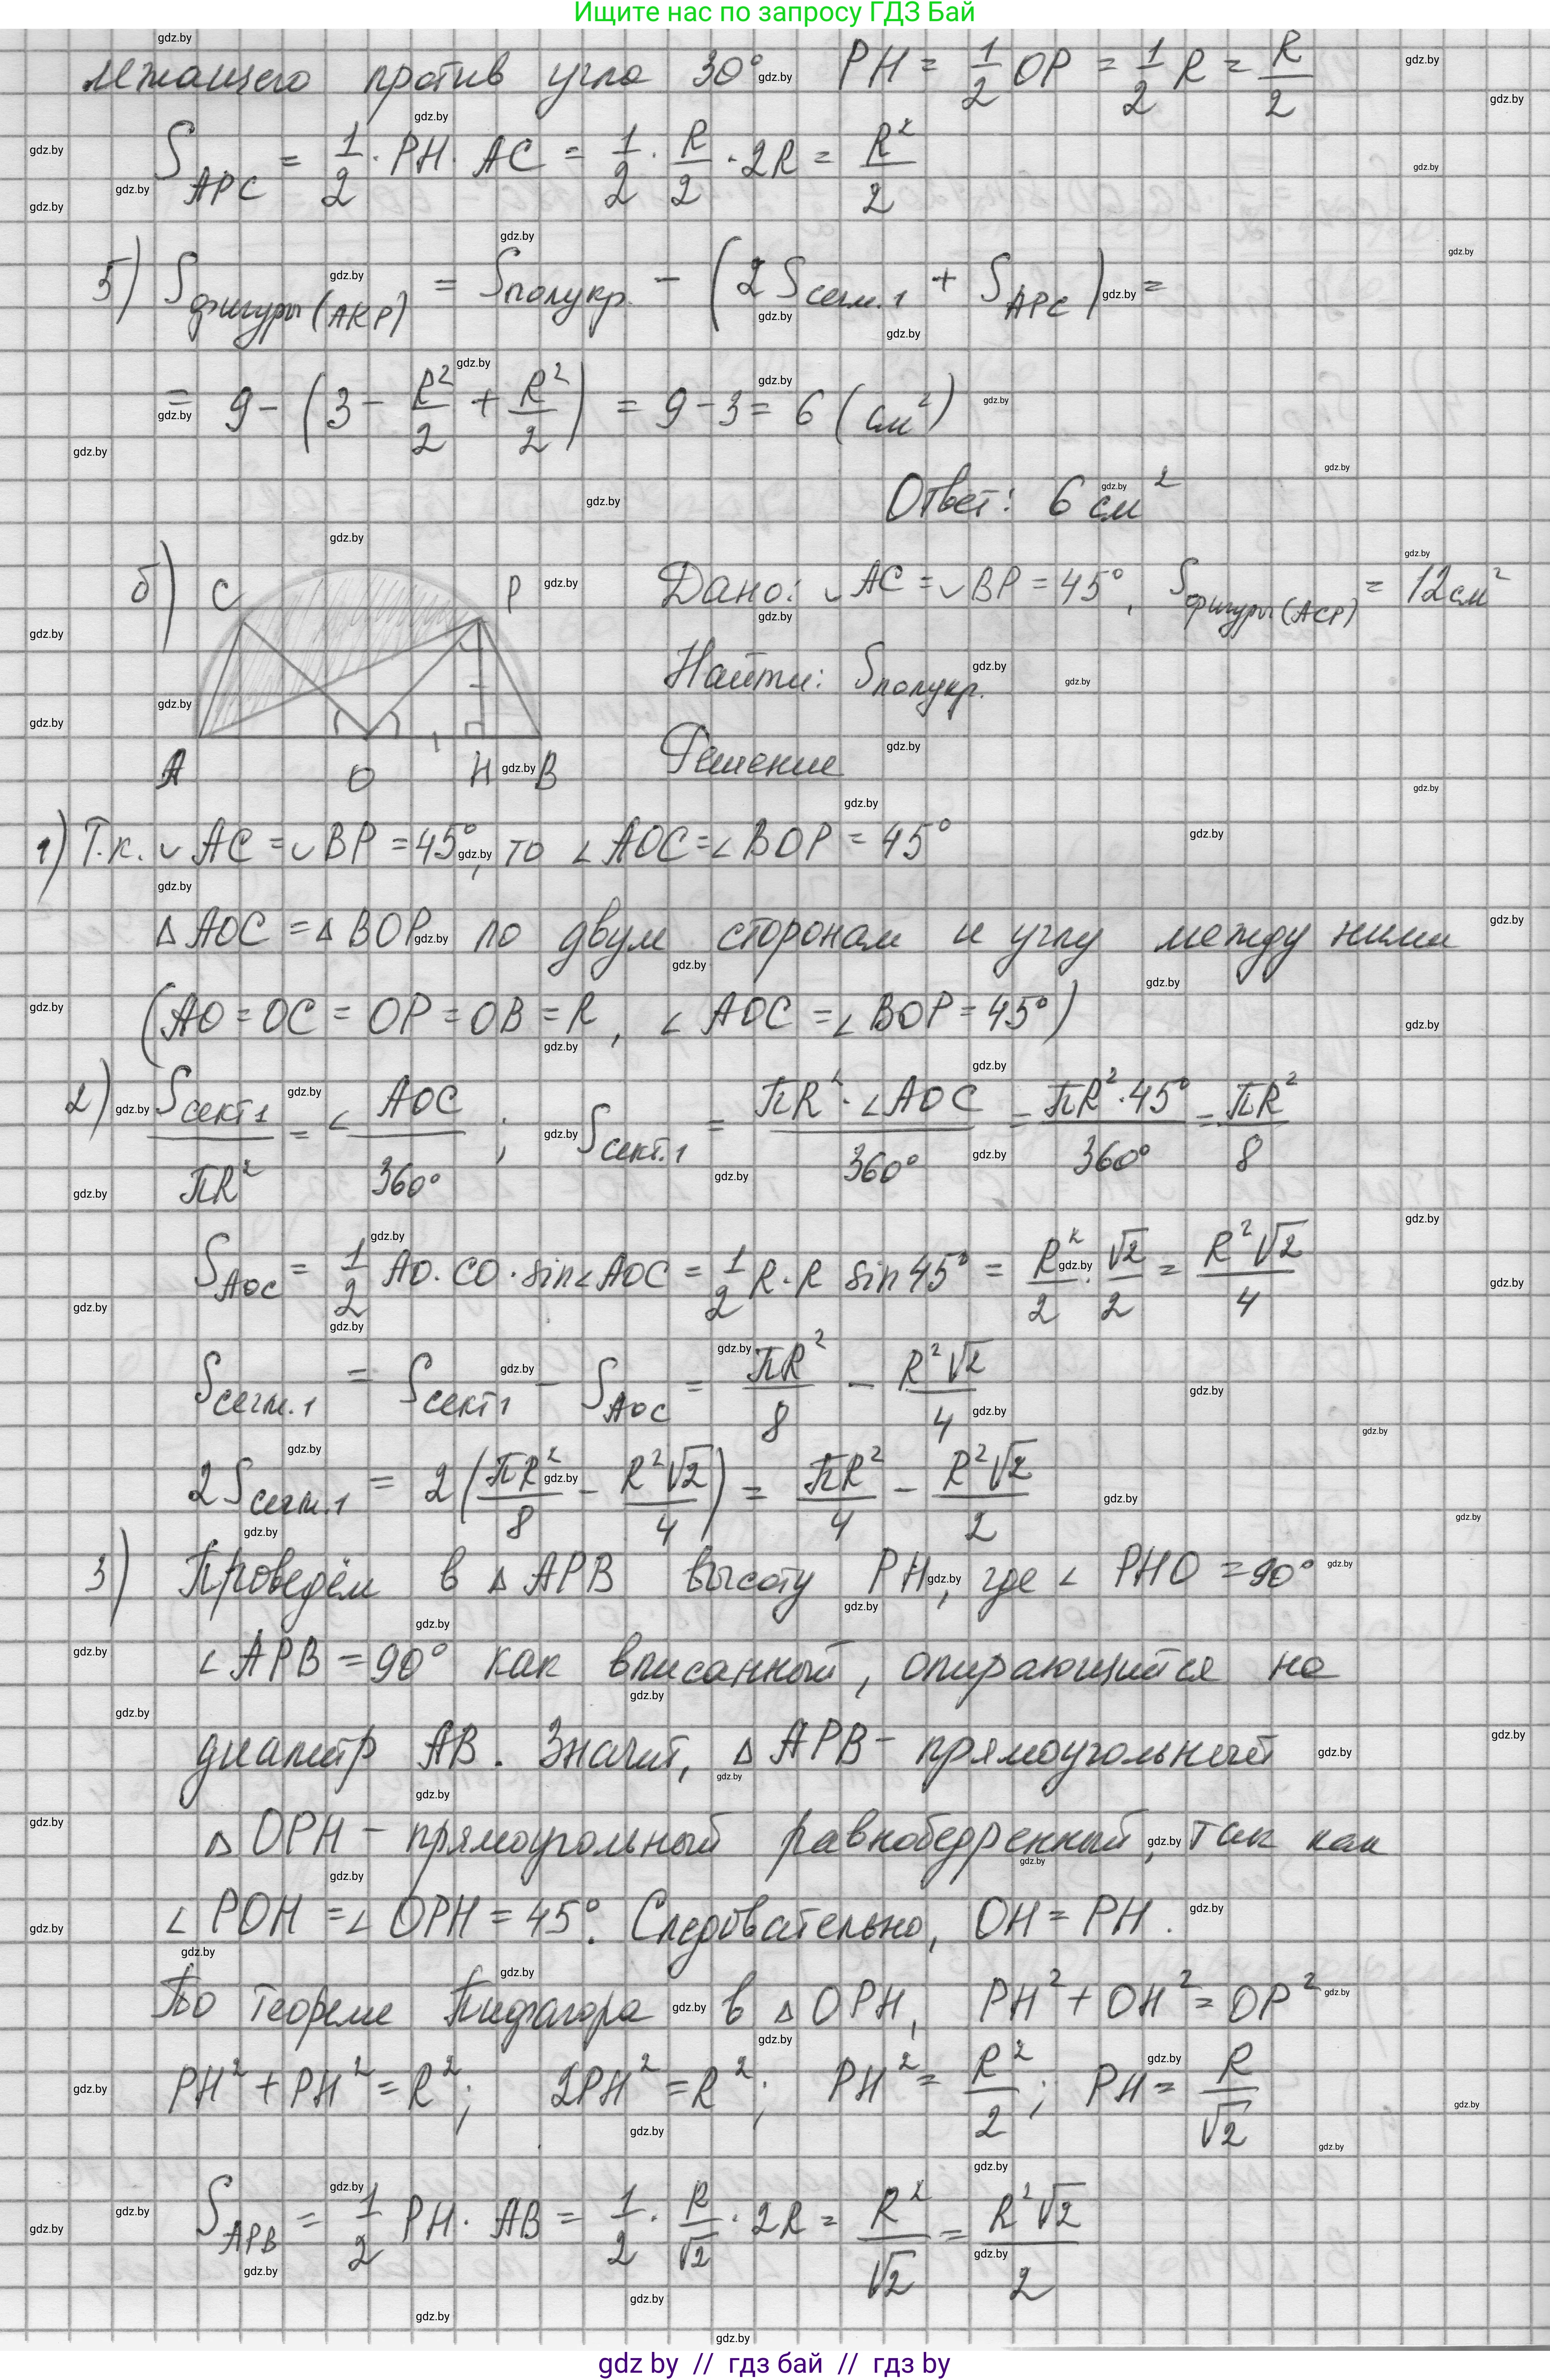 Ищите нас по запросу ГДЗ Бай
лежащего против угла 30° PH = 1/2 OP = 1/2 R = R/2
S_APC = 1/2 · PH · AC = 1/2 · R/2 · 2R = R²/2
5) S_фигуры(AKP) = S_полукр. − (2S_сегм.1 + S_APC) =
= 9 − (3 − R²/2 + R²/2) = 9 − 3 = 6 (см²)
Ответ: 6 см²
б) C P A O H B
Дано: ◡AC = ◡BP = 45°, S_фигуры(ACP) = 12 см²
Найти: S_полукр.
Решение
1) Т.к. ◡AC = ◡BP = 45°, то ∠AOC = ∠BOP = 45°
△AOC = △BOP по двум сторонам и углу между ними
(AO = OC = OP = OB = R, ∠AOC = ∠BOP = 45°)
2) S_сект1/πR² = ∠AOC/360° ; S_сект.1 = πR² · ∠AOC/360° = πR² · 45°/360° = πR²/8
S_AOC = 1/2 AO · CO · sin∠AOC = 1/2 R · R sin 45° = R²/2 · √2/2 = R²√2/4
S_сегм.1 = S_сект1 − S_AOC = πR²/8 − R²√2/4
2S_сегм.1 = 2(πR²/8 − R²√2/4) = πR²/4 − R²√2/2
3) Проведём в △APB высоту PH, где ∠PHO = 90°
∠APB = 90° как вписанный, опирающийся на
диаметр AB. Значит, △APB − прямоугольный
△OPH − прямоугольный равнобедренный, так как
∠POH = ∠OPH = 45°. Следовательно, OH = PH.
По теореме Пифагора в △OPH, PH² + OH² = OP²
PH² + PH² = R²; 2PH² = R²; PH² = R²/2; PH = R/√2
S_APB = 1/2 PH · AB = 1/2 · R/√2 · 2R = R²/√2 = R²√2/2
gdz by // гдз бай // гдз by